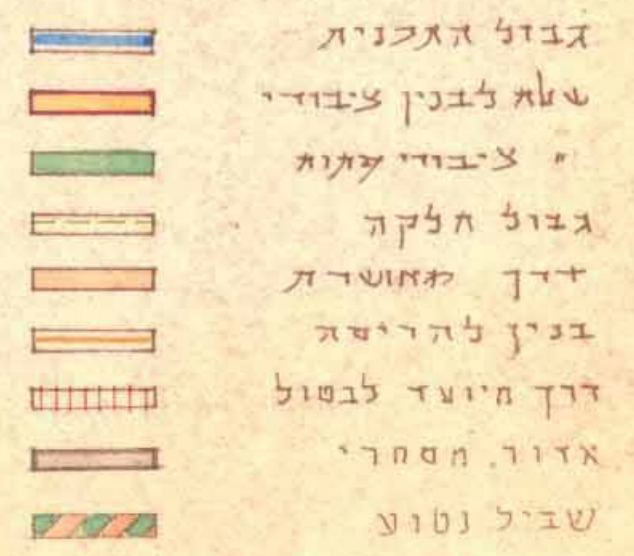 גבול התכנית
שטח לבנין ציבורי
" ציבורי פתוח
גבול חלקה
דרך מאושרת
בנין להריסה
דרך מיועד לבטול
אזור מסחרי
שביל נטוע